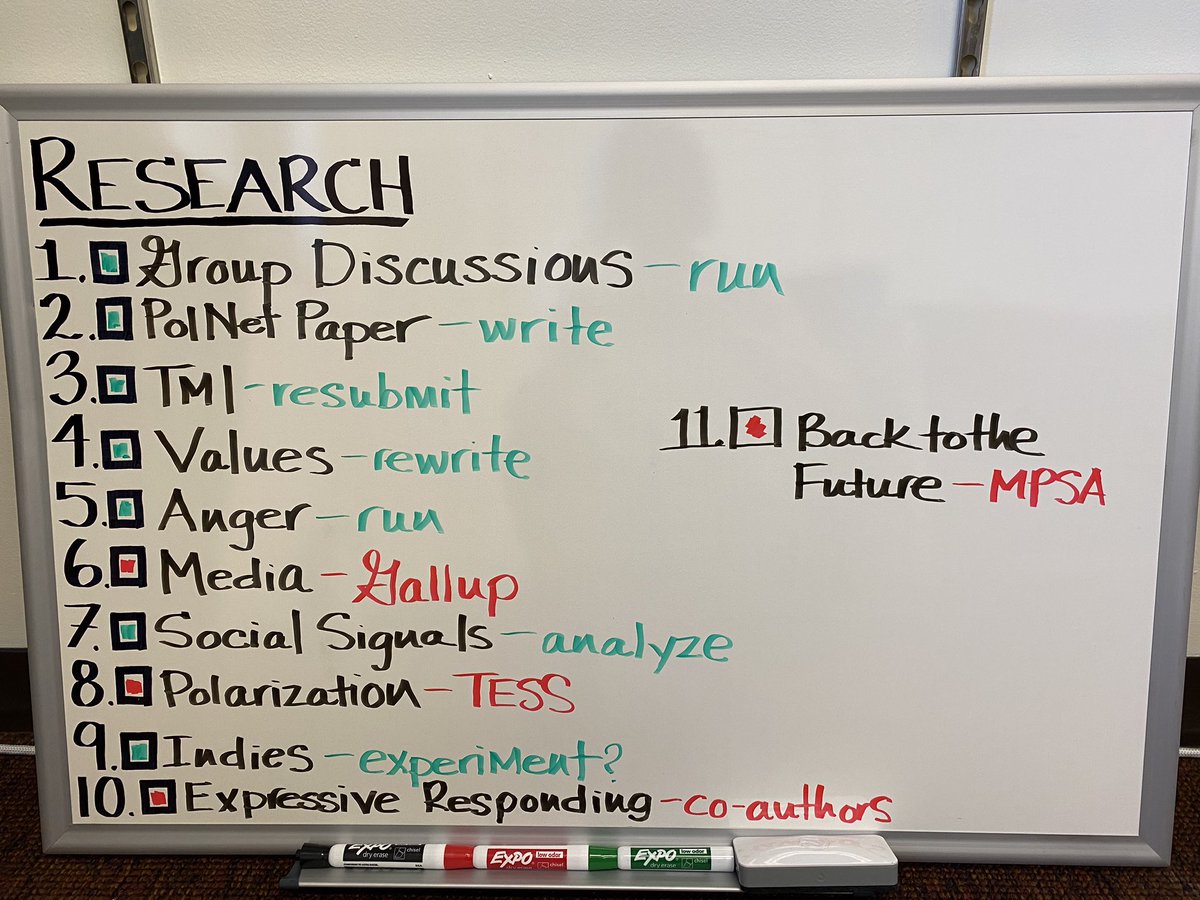 RESEARCH
1. Group Discussions - run
2. PolNet Paper - write
3. TMI - resubmit
4. Values - rewrite
5. Anger - run
6. Media - Gallup
7. Social Signals - analyze
8. Polarization - TESS
9. Indies - experiment?
10. Expressive Responding - co-authors
11. Back to the
Future - MPSA
EXPO dry erase chisel
EXPO low odor dry erase chisel
EXPO low odor dry erase chisel